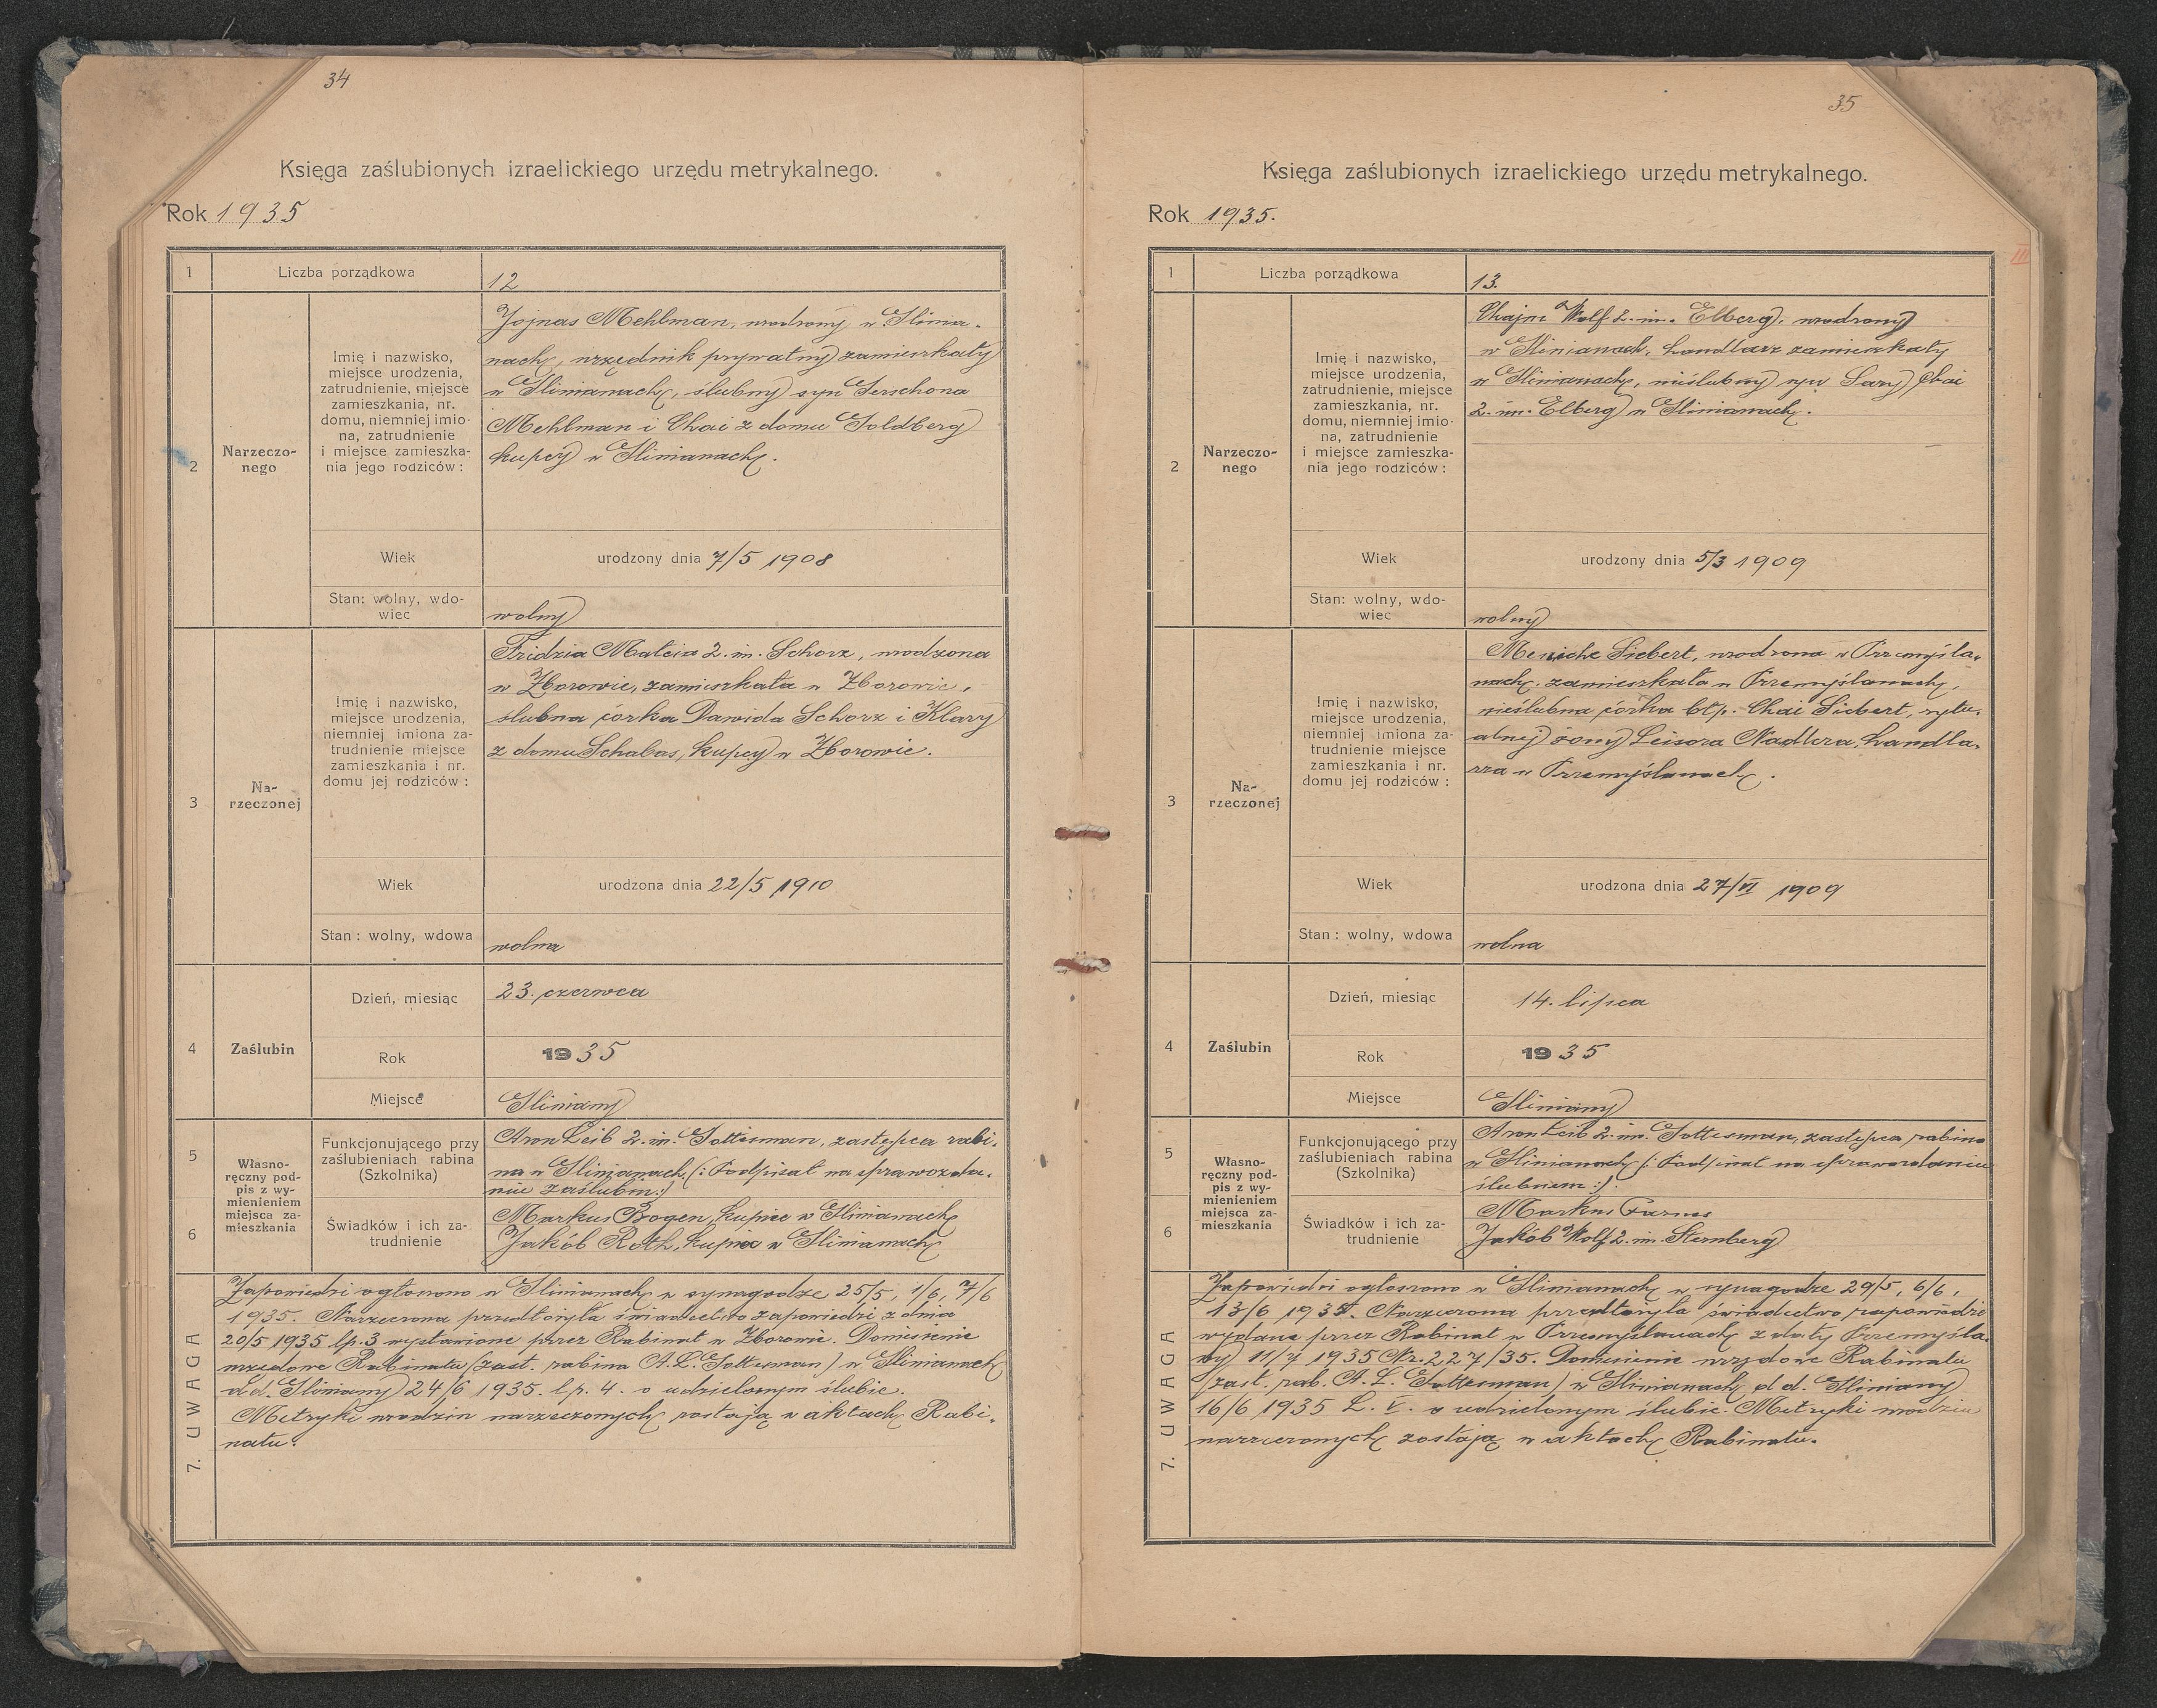 34
Księga zaślubionych izraelickiego urzędu metrykalnego.
Rok 1935
1 Liczba porządkowa 12
2 Narzeczo-
nego
Imię i nazwisko,
miejsce urodzenia,
zatrudnienie, miejsce
zamieszkania, nr.
domu, niemniej imio-
na, zatrudnienie
i miejsce zamieszka-
nia jego rodziców:
Jojnas Mehlman, urodzony w Glinia-
nach, urzędnik prywatny zamieszkały
w Glinianach, ślubny syn Gerschona
Mehlman i Chai z domu Goldberg
kupcy w Glinianach.
Wiek urodzony dnia 7/5 1908
Stan: wolny, wdo-
wiec
wolny
3 Na-
rzeczonej
Imię i nazwisko,
miejsce urodzenia,
niemniej imiona za-
trudnienie miejsce
zamieszkania i nr.
domu jej rodziców:
Fridzia 2. im. Schorz, urodzona
w Zborowie, zamieszkała w Zborowie,
ślubna córka Dawida Schorz i Klary
z domu Schabas, kupcy w Zborowie.
Wiek urodzona dnia 22/5 1910
Stan: wolny, wdowa wolna
4 Zaślubin
Dzień, miesiąc 23. czerwca
Rok 1935
Miejsce Gliniany
5
6
Własno-
ręczny pod-
pis z wy-
mienieniem
miejsca za-
mieszkania
Funkcjonującego przy
zaślubieniach rabina
(Szkolnika)
Aron Leib 2. im. Gottesman, zastępca rabi-
na w Glinianach (: Podpisał na sprawozda-
niu zaślubin:)
Świadków i ich za-
trudnienie
Markus Bogen, kupiec w Glinianach
Jakób Roth, kupiec w Glinianach
7. UWAGA
Zapowiedzi ogłoszono w Glinianach w synagodze 25/5, 1/6, 7/6
1935. Narzeczona przedłożyła świadectwo zapowiedzi z dnia
20/5 1935 lp. 3 wystawione przez Rabinat w Zborowie. Doniesienie
urzędowe Rabinatu (zast. rabina A. L. Gottesman) w Glinianach
d.d. Gliniany 24/6 1935. lp. 4. o udzielonym ślubie.
Metryki urodzin narzeczonych zostają w aktach Rabi-
natu.
35
Księga zaślubionych izraelickiego urzędu metrykalnego.
Rok 1935.
III
1 Liczba porządkowa 13.
2 Narzeczo-
nego
Imię i nazwisko,
miejsce urodzenia,
zatrudnienie, miejsce
zamieszkania, nr.
domu, niemniej imio-
na, zatrudnienie
i miejsce zamieszka-
nia jego rodziców:
Wolf 2. im. Elberg, urodzony
w Glinianach, handlarz zamieszkały
w Glinianach, nieślubny syn Sary Chai
2. im. Elberg w Glinianach.
Wiek urodzony dnia 5/3 1909
Stan: wolny, wdo-
wiec
wolny
3 Na-
rzeczonej
Imię i nazwisko,
miejsce urodzenia,
niemniej imiona za-
trudnienie miejsce
zamieszkania i nr.
domu jej rodziców:
Siebert, urodzona w Przemyśla-
nach, zamieszkała w Przemyślanach,
nieślubna córka błp. Chai Siebert, rytu-
alnej żony Leisora Nadlera, handla-
rza w Przemyślanach.
Wiek urodzona dnia 27/VI 1909
Stan: wolny, wdowa wolna
4 Zaślubin
Dzień, miesiąc 14. lipca
Rok 1935
Miejsce Gliniany
5
6
Własno-
ręczny pod-
pis z wy-
mienieniem
miejsca za-
mieszkania
Funkcjonującego przy
zaślubieniach rabina
(Szkolnika)
Aron Leib 2. im. Gottesman, zastępca rabina
w Glinianach (: Podpisał na sprawozdaniu
ślubnem:).
Świadków i ich za-
trudnienie
Markus
Jakób Wolf 2. im. Sternberg
7. UWAGA
Zapowiedzi ogłoszono w Glinianach w synagodze 29/5, 6/6,
13/6 1935. Narzeczona przedłożyła świadectwo zapowiedzi
wydane przez Rabinat w Przemyślanach z daty Przemyśla-
ny 11/7 1935 Nr. 227/35. Doniesienie urzędowe Rabinatu
(zast. rab. A. L. Gottesman) w Glinianach d.d. Gliniany
16/6 1935 L. V. o udzielonym ślubie. Metryki urodzin
narzeczonych zostają w aktach Rabinatu.